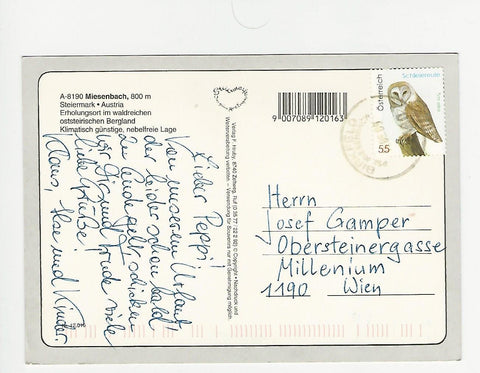 A-8190 Miesenbach, 800 m
Steiermark • Austria
Erholungsort im waldreichen
oststeirischen Bergland
Klimatisch günstige, nebelfreie Lage
Lieber Peppi!
Von unserem Urlaub,
der leider schon bald
zu Ende geht schicken
wir Dir und Trude viele
liebe Grüße
Klaus, Ilse und Kinder.
9 007089 120163
Schleiereule
Österreich
55
Herrn
Josef Gamper
Obersteinergasse
Millenium
1190 Wien